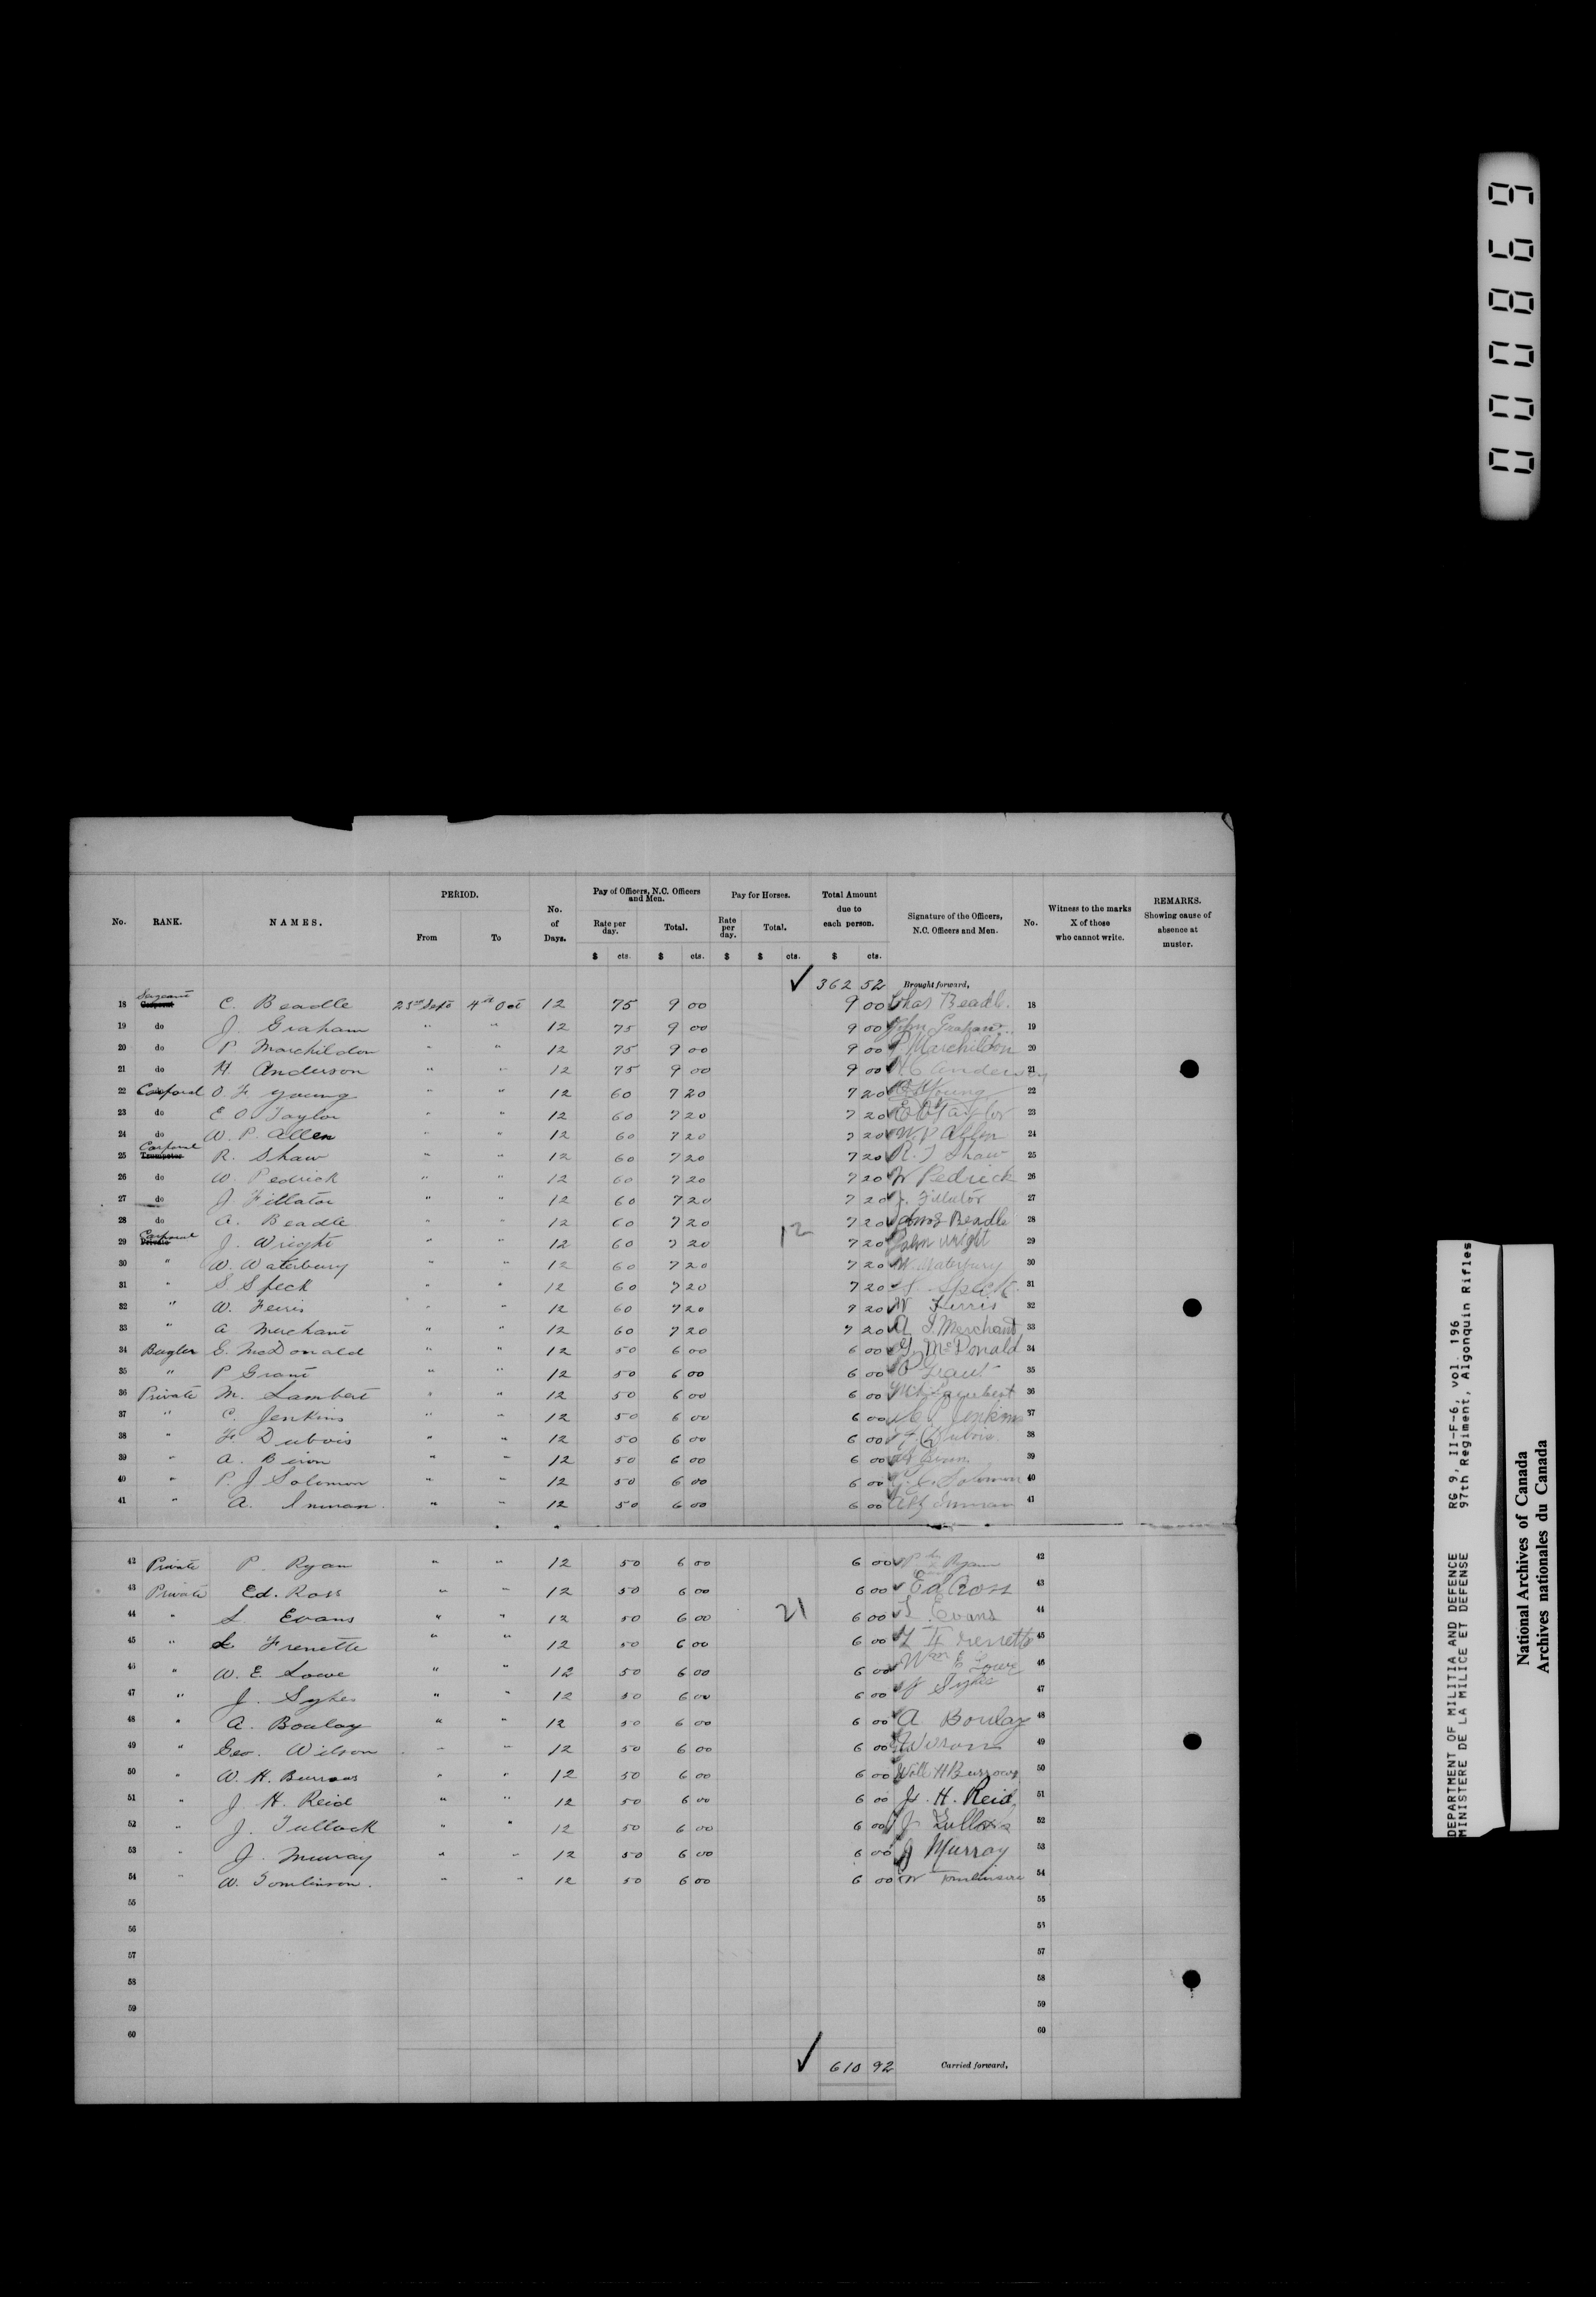 000869
No. RANK. NAMES. PERIOD. From To No. of Days. Pay of Officers, N.C. Officers and Men. Rate per day. $ cts. Total. $ cts. Pay for Horses. Rate per day. $ Total. $ cts. Total Amount due to each person. $ cts. Signature of the Officers, N.C. Officers and Men. No. Witness to the marks X of those who cannot write. REMARKS. Showing cause of absence at muster.
✓ 362 52 Brought forward,
18 Sergeant C. Beadle 23rd Sept 4th Oct 12 75 9 00 9 00 Chas Beadle. 18
19 do J. Graham " " 12 75 9 00 9 00 John Graham 19
20 do P Marchildon " " 12 75 9 00 9 00 P Marchildon 20
21 do H. Anderson " " 12 75 9 00 9 00 H C Anderson 21
22 Corporal O. F. Young " " 12 60 7 20 7 20 Young 22
23 do E O. Taylor " " 12 60 7 20 7 20 E O Taylor 23
24 do W. P. Allen " " 12 60 7 20 7 20 W. P Allen 24
25 Corporal R. Shaw " " 12 60 7 20 7 20 R. J Shaw 25
26 do W. Pedrick " " 12 60 7 20 7 20 W Pedrick 26
27 do J. Fillator " " 12 60 7 20 7 20 J. Fillator 27
28 do A. Beadle " " 12 60 7 20 7 20 Amos Beadle 28
29 Corporal J. Wright " " 12 60 7 20 12 7 20 John Wright 29
30 " W. Waterbury " " 12 60 7 20 7 20 W. Waterbury 30
31 " S. Speck " " 12 60 7 20 7 20 S. Speck. 31
32 " W. Ferris " " 12 60 7 20 7 20 W Ferris 32
33 " A Merchant " " 12 60 7 20 7 20 A. J. Merchant 33
34 Bugler G. McDonald " " 12 50 6 00 6 00 G. McDonald 34
35 " P Grant " " 12 50 6 00 6 00 P Grant 35
36 Private M. Lambert " " 12 50 6 00 6 00 Lambert 36
37 " C. Jenkins " " 12 50 6 00 6 00 C P Jenkins 37
38 " F. Dubois " " 12 50 6 00 6 00 F. Dubois. 38
39 " A. Biron " " 12 50 6 00 6 00 A Biron. 39
40 " P. J Solomon " " 12 50 6 00 6 00 Solomon 40
41 " A. Inman. " " 12 50 6 00 6 00 Inman 41
42 Private P. Ryan " " 12 50 6 00 6 00 P Ryan 42
43 Private Ed. Ross " " 12 50 6 00 6 00 Ed Ross 43
44 " L. Evans " " 12 50 6 00 21 6 00 L. Evans 44
45 " L. Frenette " " 12 50 6 00 6 00 L Frenette 45
46 " W. E. Lowe " " 12 50 6 00 6 00 Wm E Lowe 46
47 " J. Sykes " " 12 50 6 00 6 00 J Sykes 47
48 " A. Boulay " " 12 50 6 00 6 00 A Boulay 48
49 " Geo. Wilson " " 12 50 6 00 6 00 G Wilson 49
50 " W. H. Burrows " " 12 50 6 00 6 00 Will H Burrows 50
51 " J. H. Reid " " 12 50 6 00 6 00 J. H. Reid. 51
52 " J. Tullock " " 12 50 6 00 6 00 J 52
53 " J. Murray " " 12 50 6 00 6 00 J Murray 53
54 " W. Tomlinson. " " 12 50 6 00 6 00 W Tomlinson 54
55 55
56 51
57 57
58 58
59 59
60 60
✓ 610 92 Carried forward,
DEPARTMENT OF MILITIA AND DEFENCE RG 9, II-F-6, vol. 196
MINISTERE DE LA MILICE ET DEFENSE 97th Regiment, Algonquin Rifles
National Archives of Canada
Archives nationales du Canada